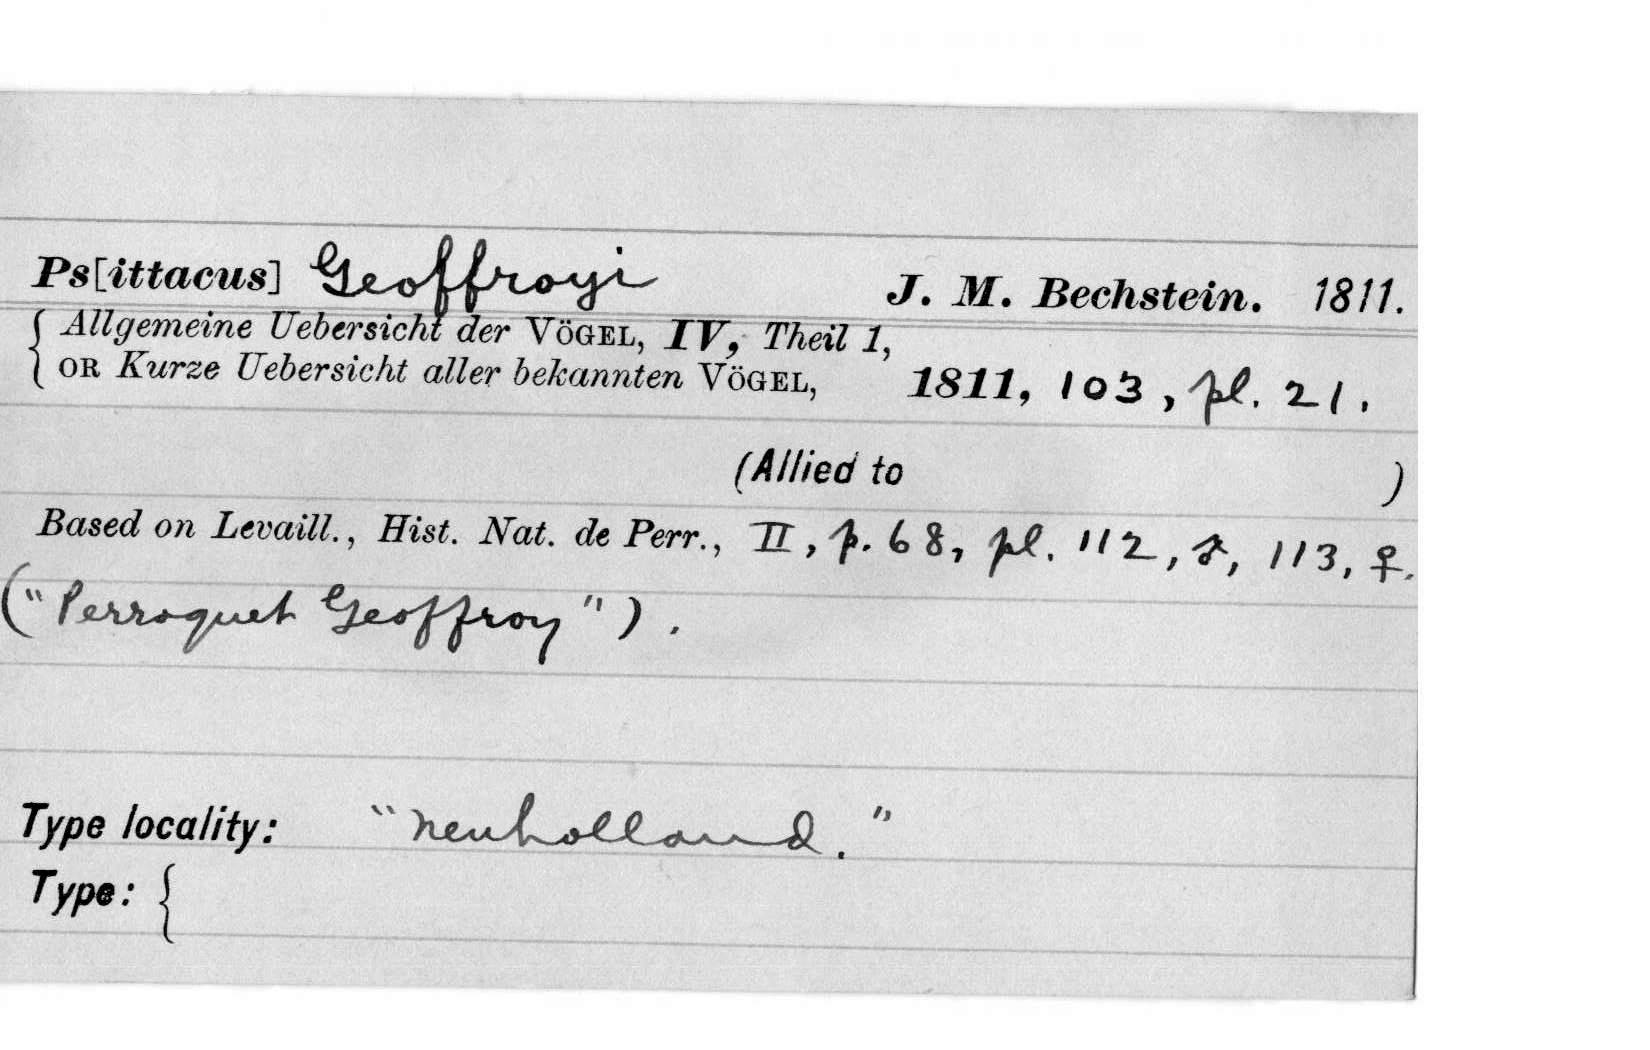 Ps[ittacus] Geoffroyi J. M. Bechstein. 1811.
{ Allgemeine Uebersicht der VÖGEL, IV, Theil 1,
OR Kurze Uebersicht aller bekannten VÖGEL, 1811, 103, pl. 21.
(Allied to )
Based on Levaill., Hist. Nat. de Perr., II, p. 68, pl. 112, ♂, 113, ♀.
("Perroquet Geoffroy").
Type locality: "Neuholland."
Type: {